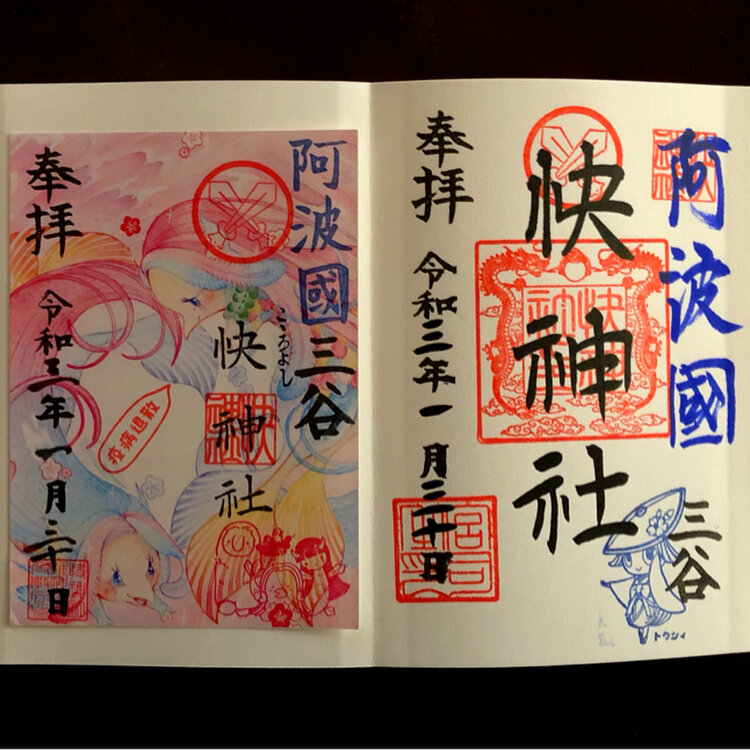 阿波國
三谷
トクシィ
快神社
奉拝
令和三年一月二十日
阿波國三谷
こころよし
快神社
疫病退散
奉拝
令和三年一月二十日